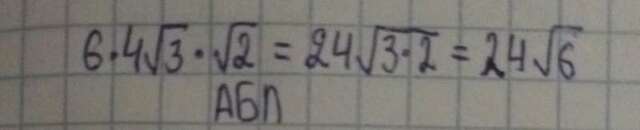 6·4√3·√2 = 24√3·2 = 24√6
АБП